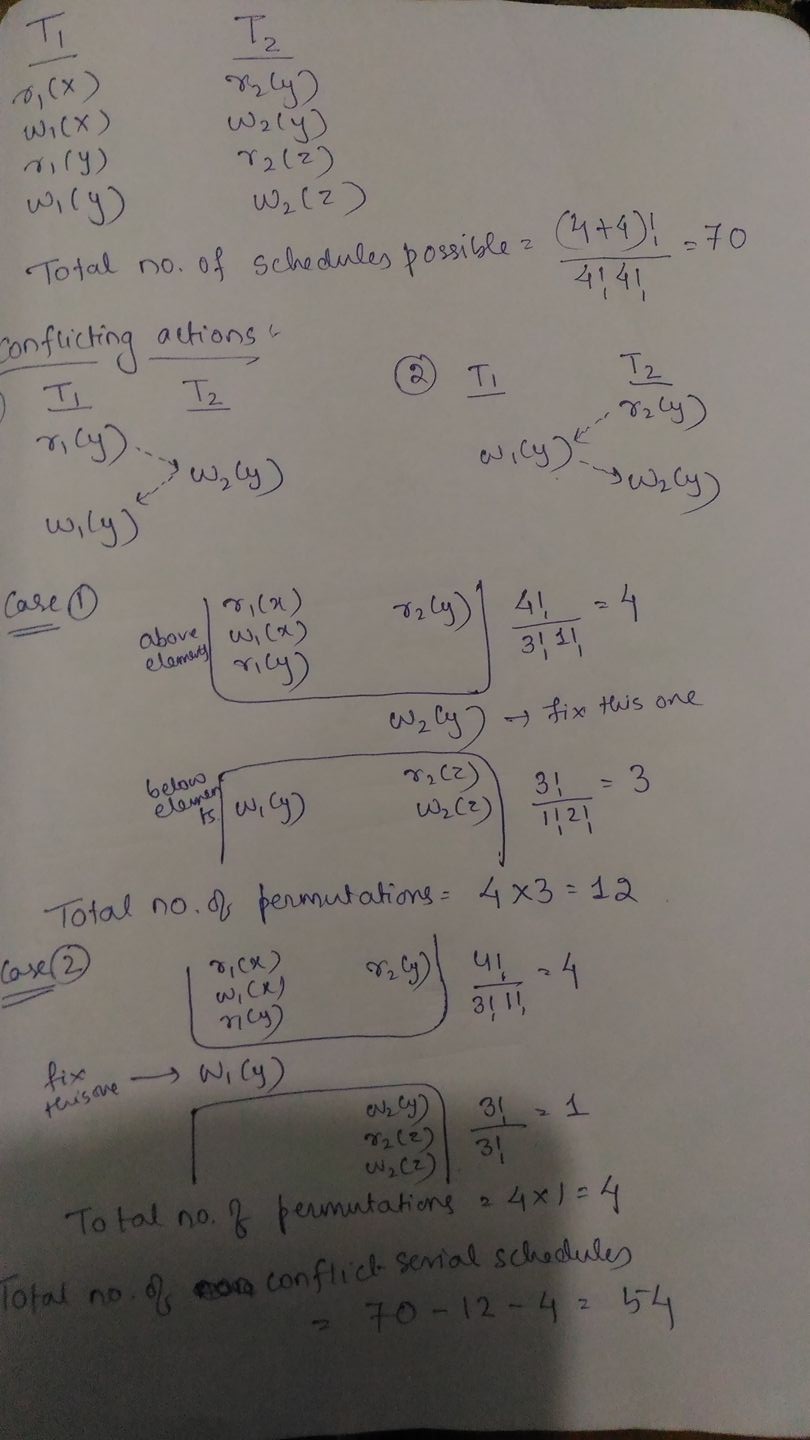 T1 T2
r1(x) r2(y)
w1(x) w2(y)
r1(y) r2(z)
w1(y) w2(z)
Total no. of schedules possible = (4+4)! / 4! 4! = 70
Conflicting actions:
) T1 T2
r1(y)
w2(y)
w1(y)
② T1 T2
r2(y)
w1(y)
w2(y)
Case ①
above elements
r1(x) r2(y)
w1(x)
r1(y)
4! / 3! 1! = 4
w2(y) → fix this one
below elements
r2(z)
w1(y) w2(z)
3! / 1! 2! = 3
Total no. of permutations = 4 × 3 = 12
Case ②
r1(x) r2(y)
w1(x)
r1(y)
4! / 3! 1! = 4
fix this one → w1(y)
w2(y)
r2(z)
w2(z)
3! / 3! = 1
Total no. of permutations = 4 × 1 = 4
Total no. of conflict serial schedules
= 70 - 12 - 4 = 54